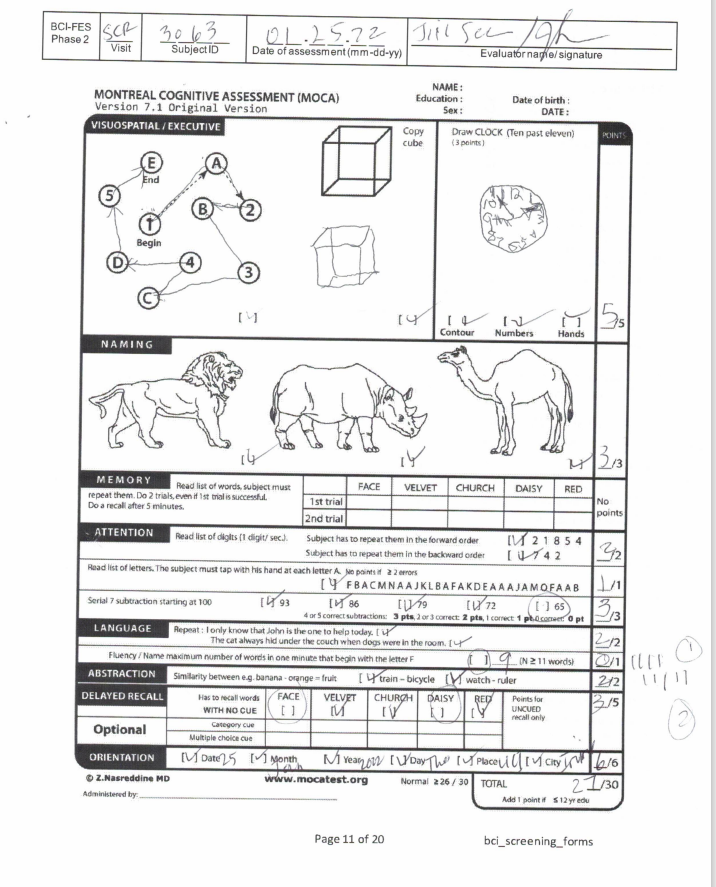 BCI-FES SCR 3063 01.25.22
Phase 2 Visit Subject ID Date of assessment (mm-dd-yy) Evaluator name/signature
MONTREAL COGNITIVE ASSESSMENT (MOCA)
Version 7.1 Original Version
NAME :
Education :
Sex :
Date of birth :
DATE :
VISUOSPATIAL / EXECUTIVE
E
End
A
5
B
2
1
Begin
D
4
3
C
Copy
cube
Draw CLOCK (Ten past eleven)
(3 points)
POINTS
[✓] [✓] [✓] [✓] [✓]
Contour Numbers Hands
5/5
NAMING
[✓] [✓] [✓] 3/3
MEMORY
Read list of words, subject must
repeat them. Do 2 trials, even if 1st trial is successful.
Do a recall after 5 minutes.
FACE VELVET CHURCH DAISY RED
1st trial
2nd trial
No
points
ATTENTION
Read list of digits (1 digit/ sec.). Subject has to repeat them in the forward order [✓] 2 1 8 5 4
Subject has to repeat them in the backward order [✓] 7 4 2 /2
Read list of letters. The subject must tap with his hand at each letter A. No points if ≥ 2 errors
[✓] F B A C M N A A J K L B A F A K D E A A A J A M O F A A B 1/1
Serial 7 subtraction starting at 100 [✓] 93 [✓] 86 [✓] 79 [✓] 72 [ ] 65
4 or 5 correct subtractions: 3 pts, 2 or 3 correct: 2 pts, 1 correct: 1 pt, 0 correct: 0 pt 3/3
LANGUAGE
Repeat : I only know that John is the one to help today. [✓]
The cat always hid under the couch when dogs were in the room. [✓] 2/2
Fluency / Name maximum number of words in one minute that begin with the letter F [ ] 9 (N ≥ 11 words) 0/1
ABSTRACTION
Similarity between e.g. banana - orange = fruit [✓] train – bicycle [✓] watch - ruler 2/2
DELAYED RECALL
Has to recall words
WITH NO CUE
FACE VELVET CHURCH DAISY RED
[ ] [✓] [✓] [ ] [✓]
Points for
UNCUED
recall only
3/5
Optional
Category cue
Multiple choice cue
ORIENTATION
[✓] Date 25 [✓] Month [✓] Year [✓] Day [✓] Place [✓] City 6/6
© Z.Nasreddine MD www.mocatest.org Normal ≥ 26 / 30 TOTAL /30
Administered by: Add 1 point if ≤ 12 yr edu
1
2
Page 11 of 20 bci_screening_forms